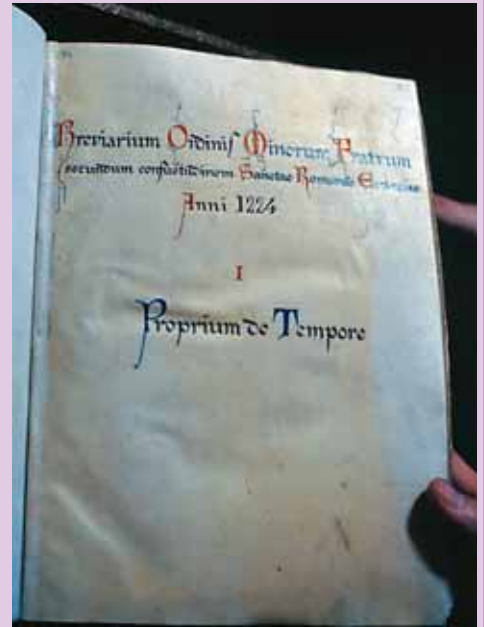 Breviarium Ordinis Minorum Fratrum
secundum consuetudinem Sanctae Romanae Ecclesiae
Anni 1224
I
Proprium de Tempore